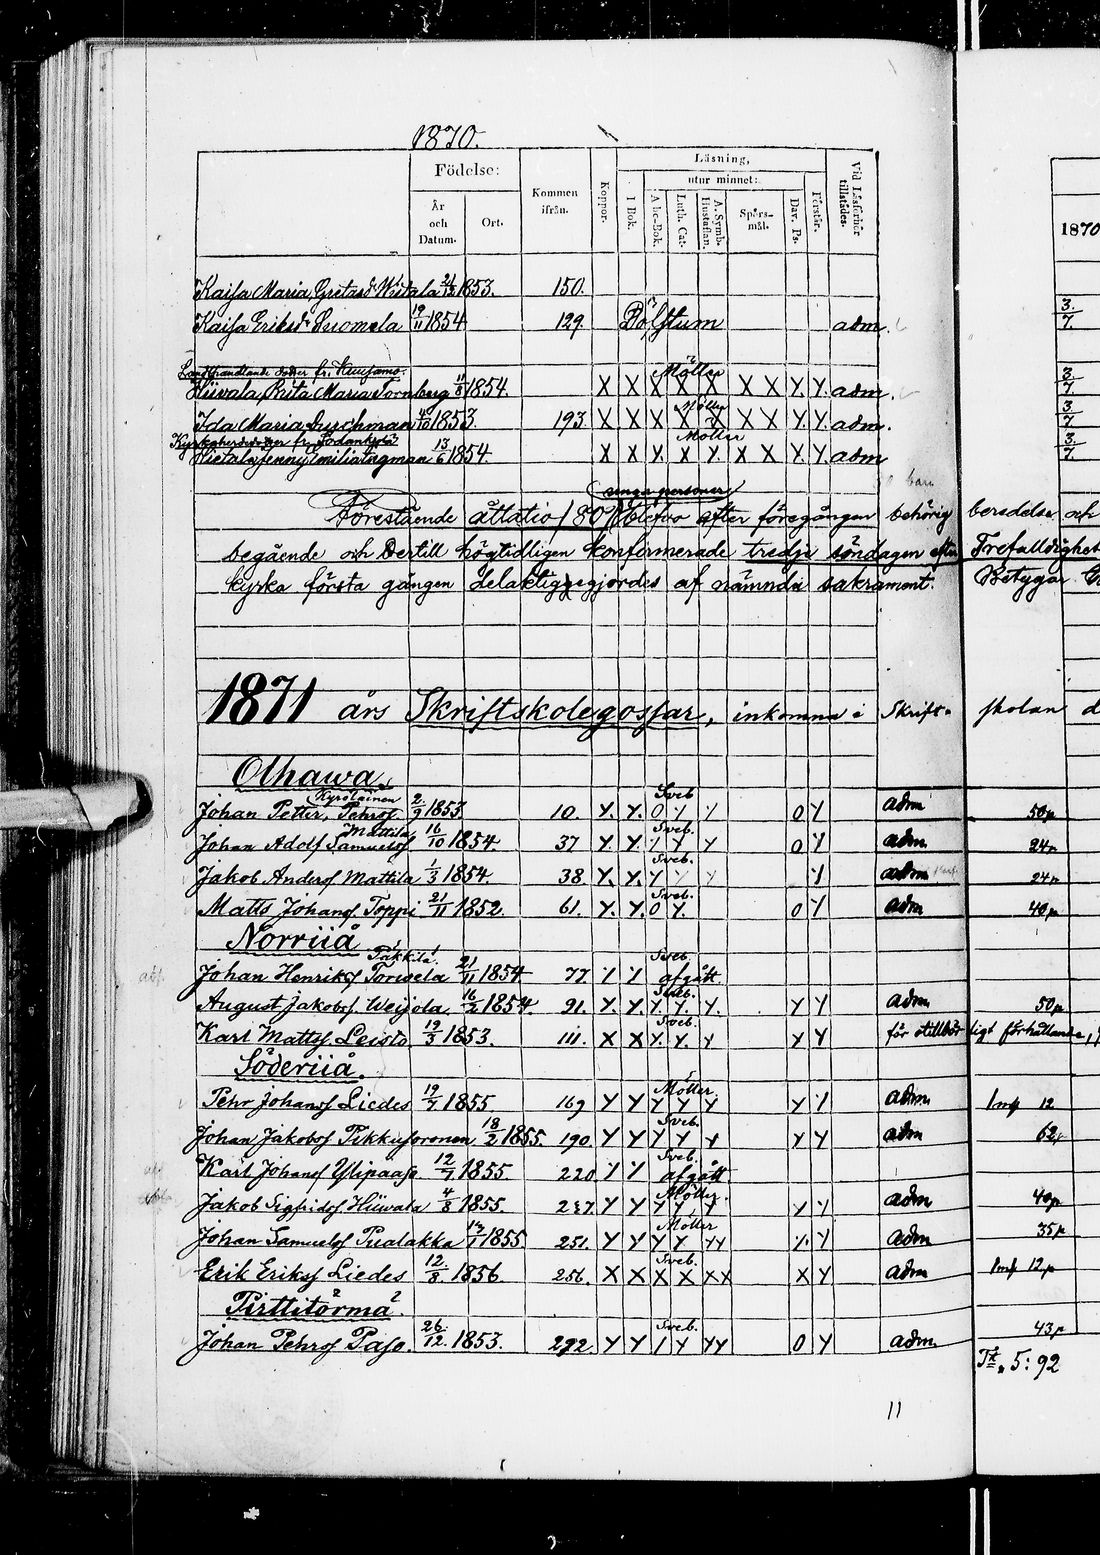 1870.
Födelse:
Kommen ifrån.
Koppor.
Läsning,
utur minnet:
Vid Läsförhör tillstädes.
År och Datum.
Ort.
I Bok.
A be-Bok.
Luth. Cat.
A. Symb. Hustaflan.
Spörsmål.
Dav. Ps.
Förstår.
1870
Kaisa Maria Gretasd. 1853. 150.
Kaisa Eriksd. Suomela 19/11 1854 129. adm. 3/7
fr. Kuusamo. Möller
Hiivala, Brita Maria Tornberg 1854. X X X X X X X Y. Y. adm. 3/7
Möller
Ida Maria 4/10 1853. 193. X X X X X X X Y. Y. adm. 3/7
Möller
Hietala Jenny Emilia 13/6 1854 X X X X Y. X X Y. Y. adm 3/7
unga personer
Förestående åttatio /80/ blefvo efter föregången behörig beredelse och
begående och dertill högtidligen konfirmerade tredje söndagen efter Trefaldighet
kyrka första gången delaktiggegjordes af nämnda sakrament. Betygar
1871 års Skriftskolegossar, inkomna i Skrift- skolan
Olhawa
Kyröläinen Sveb
Johan Petter, Pehrss. 2/9 1853 10. Y. Y. O Y Y O Y adm 50p
Mattila, Sveb.
Johan Adolf Samuelss 16/10 1854. 37 Y. Y. Y Y Y O Y adm 24p
Sveb.
Jakob Anderss Mattila 1/3 1854. 38. Y. Y. Y Y Y Y adm 24p
Sveb.
Matts Johanss. Toppi 21/11 1852. 61. Y. Y. O Y. O Y adm 40p
Norriiå
Pakkila. Sveb.
Johan Henrikss Torwela 21/11 1854 77. Y Y afgått.
Sveb.
August Jakobss. Weijola. 16/2 1854. 91. Y. Y. Y. Y. Y. Y Y adm 50p
Sveb.
Karl Mattss. Leisto 19/3 1853. 111. X X Y. Y. Y Y Y för otillbörligt förhållande
Söderiiå.
Möller
Pehr Johanss Liedes 19/7 1855 169 Y Y Y Y Y Y Y adm 1mk 12
Sveb.
Johan Jakobss Pikkusoronen 18/2 1855. 190. Y Y Y Y Y Y Y adm 62p
Sveb.
Karl Johanss Ylipaaso. 12/7 1855. 220 Y Y afgått
Möller.
Jakob Sigfridss Hiivala 4/8 1855. 237. Y Y Y Y Y Y Y adm 40p
Möller
Johan Samuelss Pualakka 1855. 251. Y Y Y Y YY Y. Y adm 35p
Sveb.
Erik Erikss Liedes 12/8 1856. 256. X X X X XX X Y adm 1mk 12p
Pirttitörmä.
Sveb.
Johan Pehrss Paso. 26/12. 1853. 292. Y Y Y Y YY O Y adm. 43p
5: 92
11